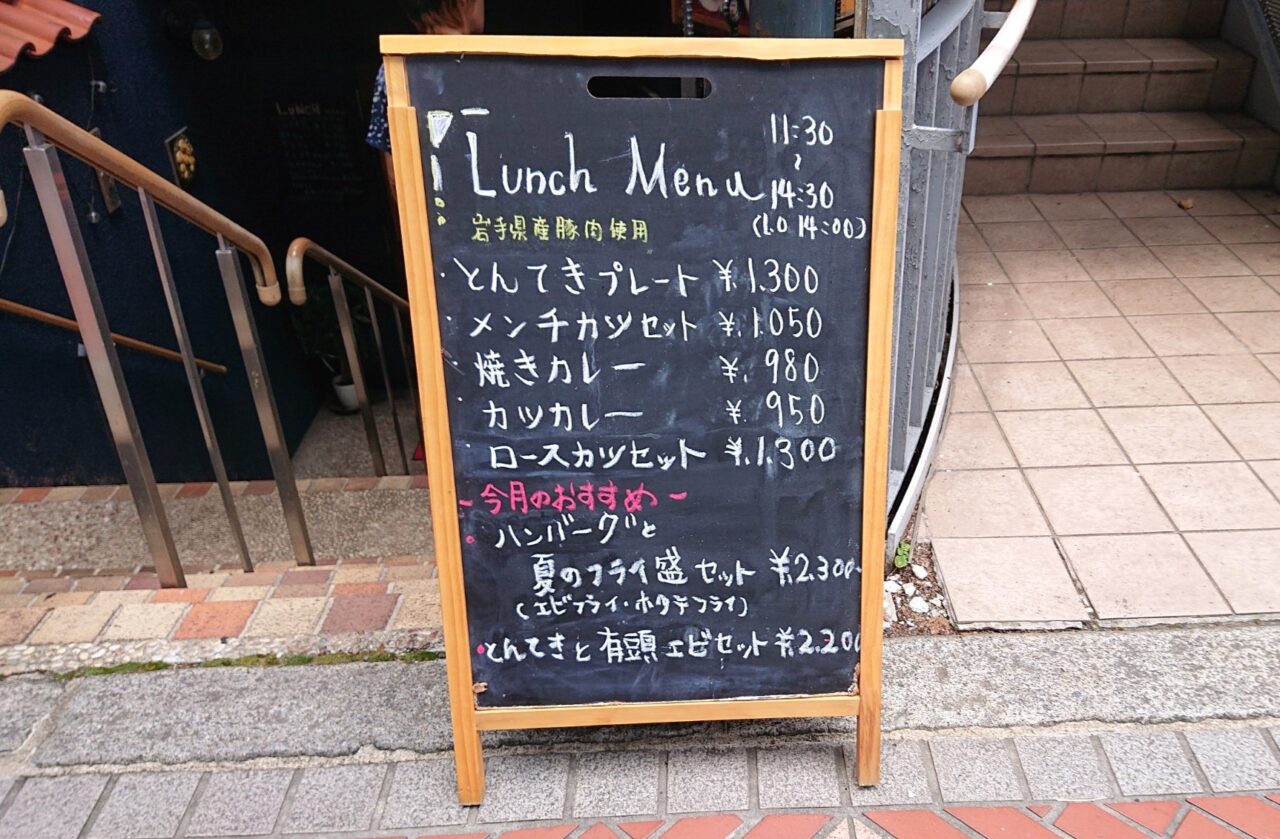 Lunch Menu
11:30
~
14:30
(L.O 14:00)
岩手県産豚肉使用
・とんてきプレート ¥.1.300
・メンチカツセット ¥.1.050
・焼きカレー ¥. 980
・カツカレー ¥. 950
・ロースカツセット ¥.1.300
- 今月のおすすめ -
・ハンバーグと
夏のフライ盛セット ¥2.300-
(エビフライ・ホタテフライ)
・とんてきと有頭エビセット ¥2.200
LUNCH